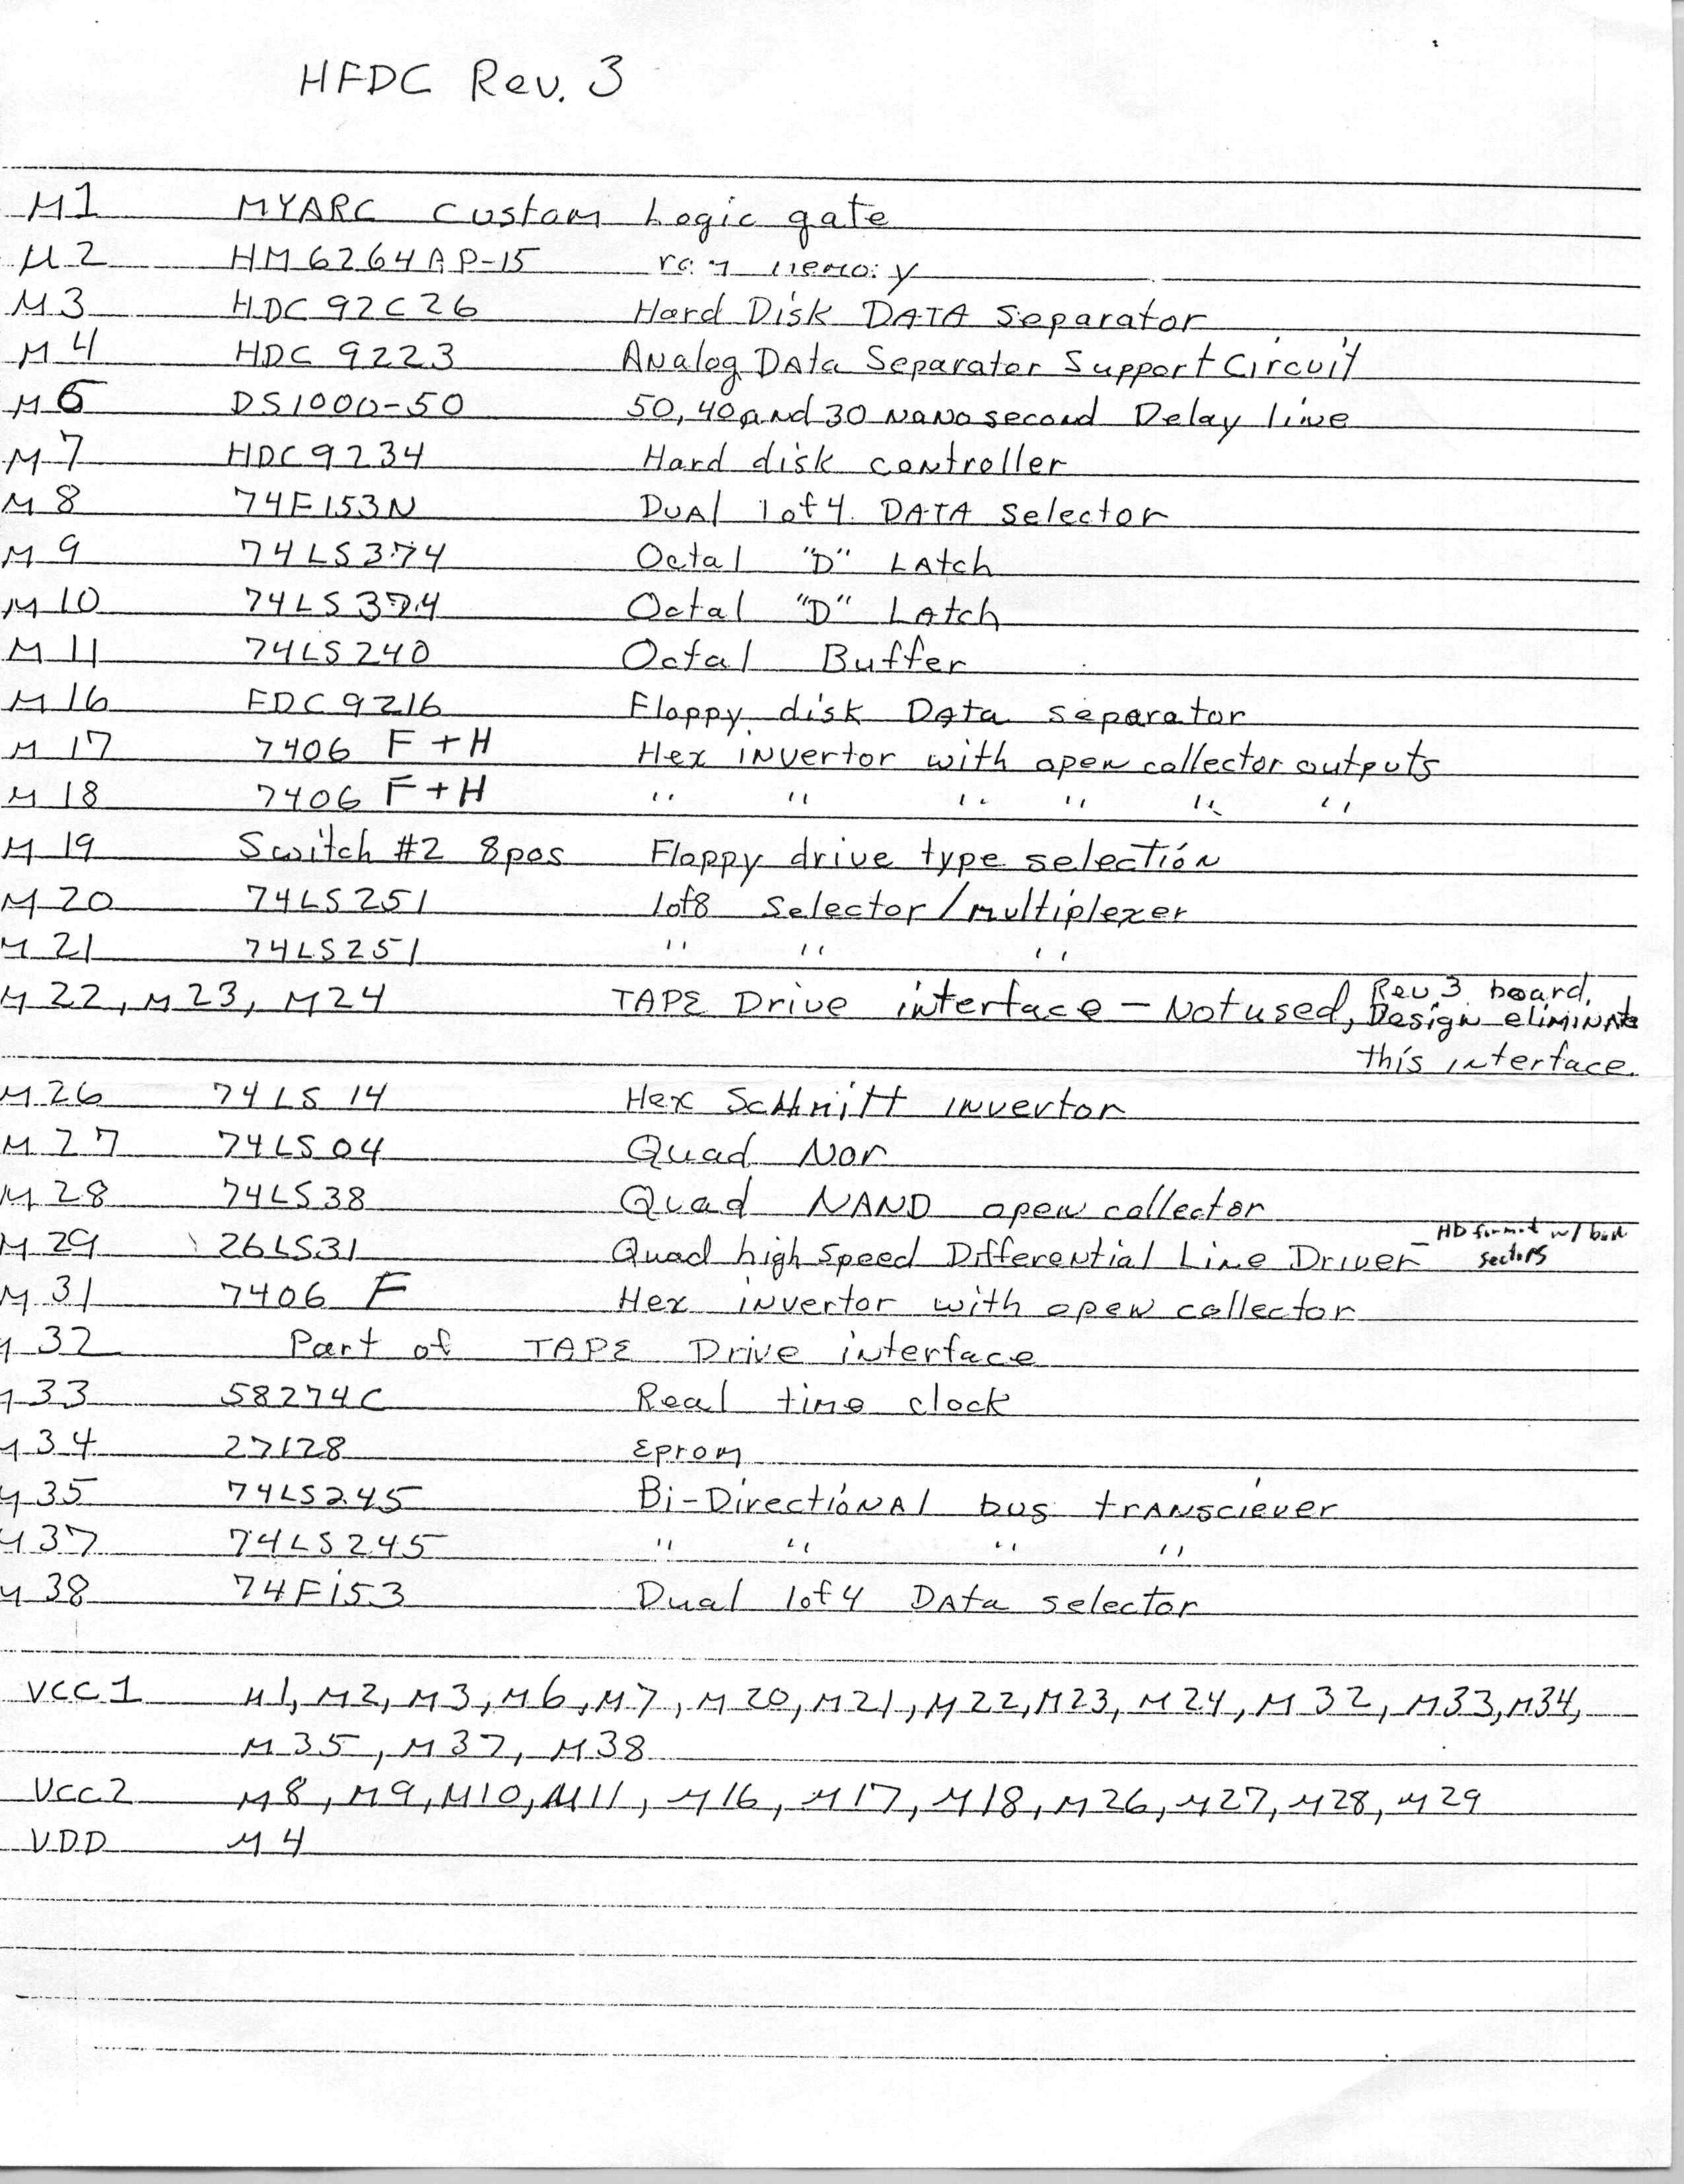 HFDC Rev. 3
M1 MYARC Custom Logic gate
M2 HM6264AP-15 ram memory
M3 HDC92C26 Hard Disk DATA Separator
M4 HDC 9223 Analog Data Separator Support Circuit
M6 DS1000-50 50, 40 and 30 Nanosecond Delay line
M7 HDC9234 Hard disk controller
M8 74F153N Dual 1 of 4 DATA Selector
M9 74LS374 Octal "D" Latch
M10 74LS374 Octal "D" Latch
M11 74LS240 Octal Buffer
M16 FDC9216 Floppy disk Data separator
M17 7406 F+H Hex invertor with open collector outputs
M18 7406 F+H " " " " " "
M19 Switch #2 8pos Floppy drive type selection
M20 74LS251 1of8 Selector/multiplexer
M21 74LS251 " " "
M22, M23, M24 TAPE Drive interface - Not used, Rev.3 board.
Design eliminate
this interface.
M26 74LS14 Hex Schmitt invertor
M27 74LS04 Quad Nor
M28 74LS38 Quad NAND open collector
M29 26LS31 Quad high Speed Differential Line Driver - HD format w/ bad
sectors
M31 7406 F Hex invertor with open collector
M32 Part of TAPE Drive interface
M33 58274C Real time clock
M34 27128 Eprom
M35 74LS245 Bi-Directional bus transciever
M37 74LS245 " " " "
M38 74F153 Dual 1of4 Data selector
VCC1 M1, M2, M3, M6, M7, M20, M21, M22, M23, M24, M32, M33, M34,
M35, M37, M38
VCC2 M8, M9, M10, M11, M16, M17, M18, M26, M27, M28, M29
VDD M4